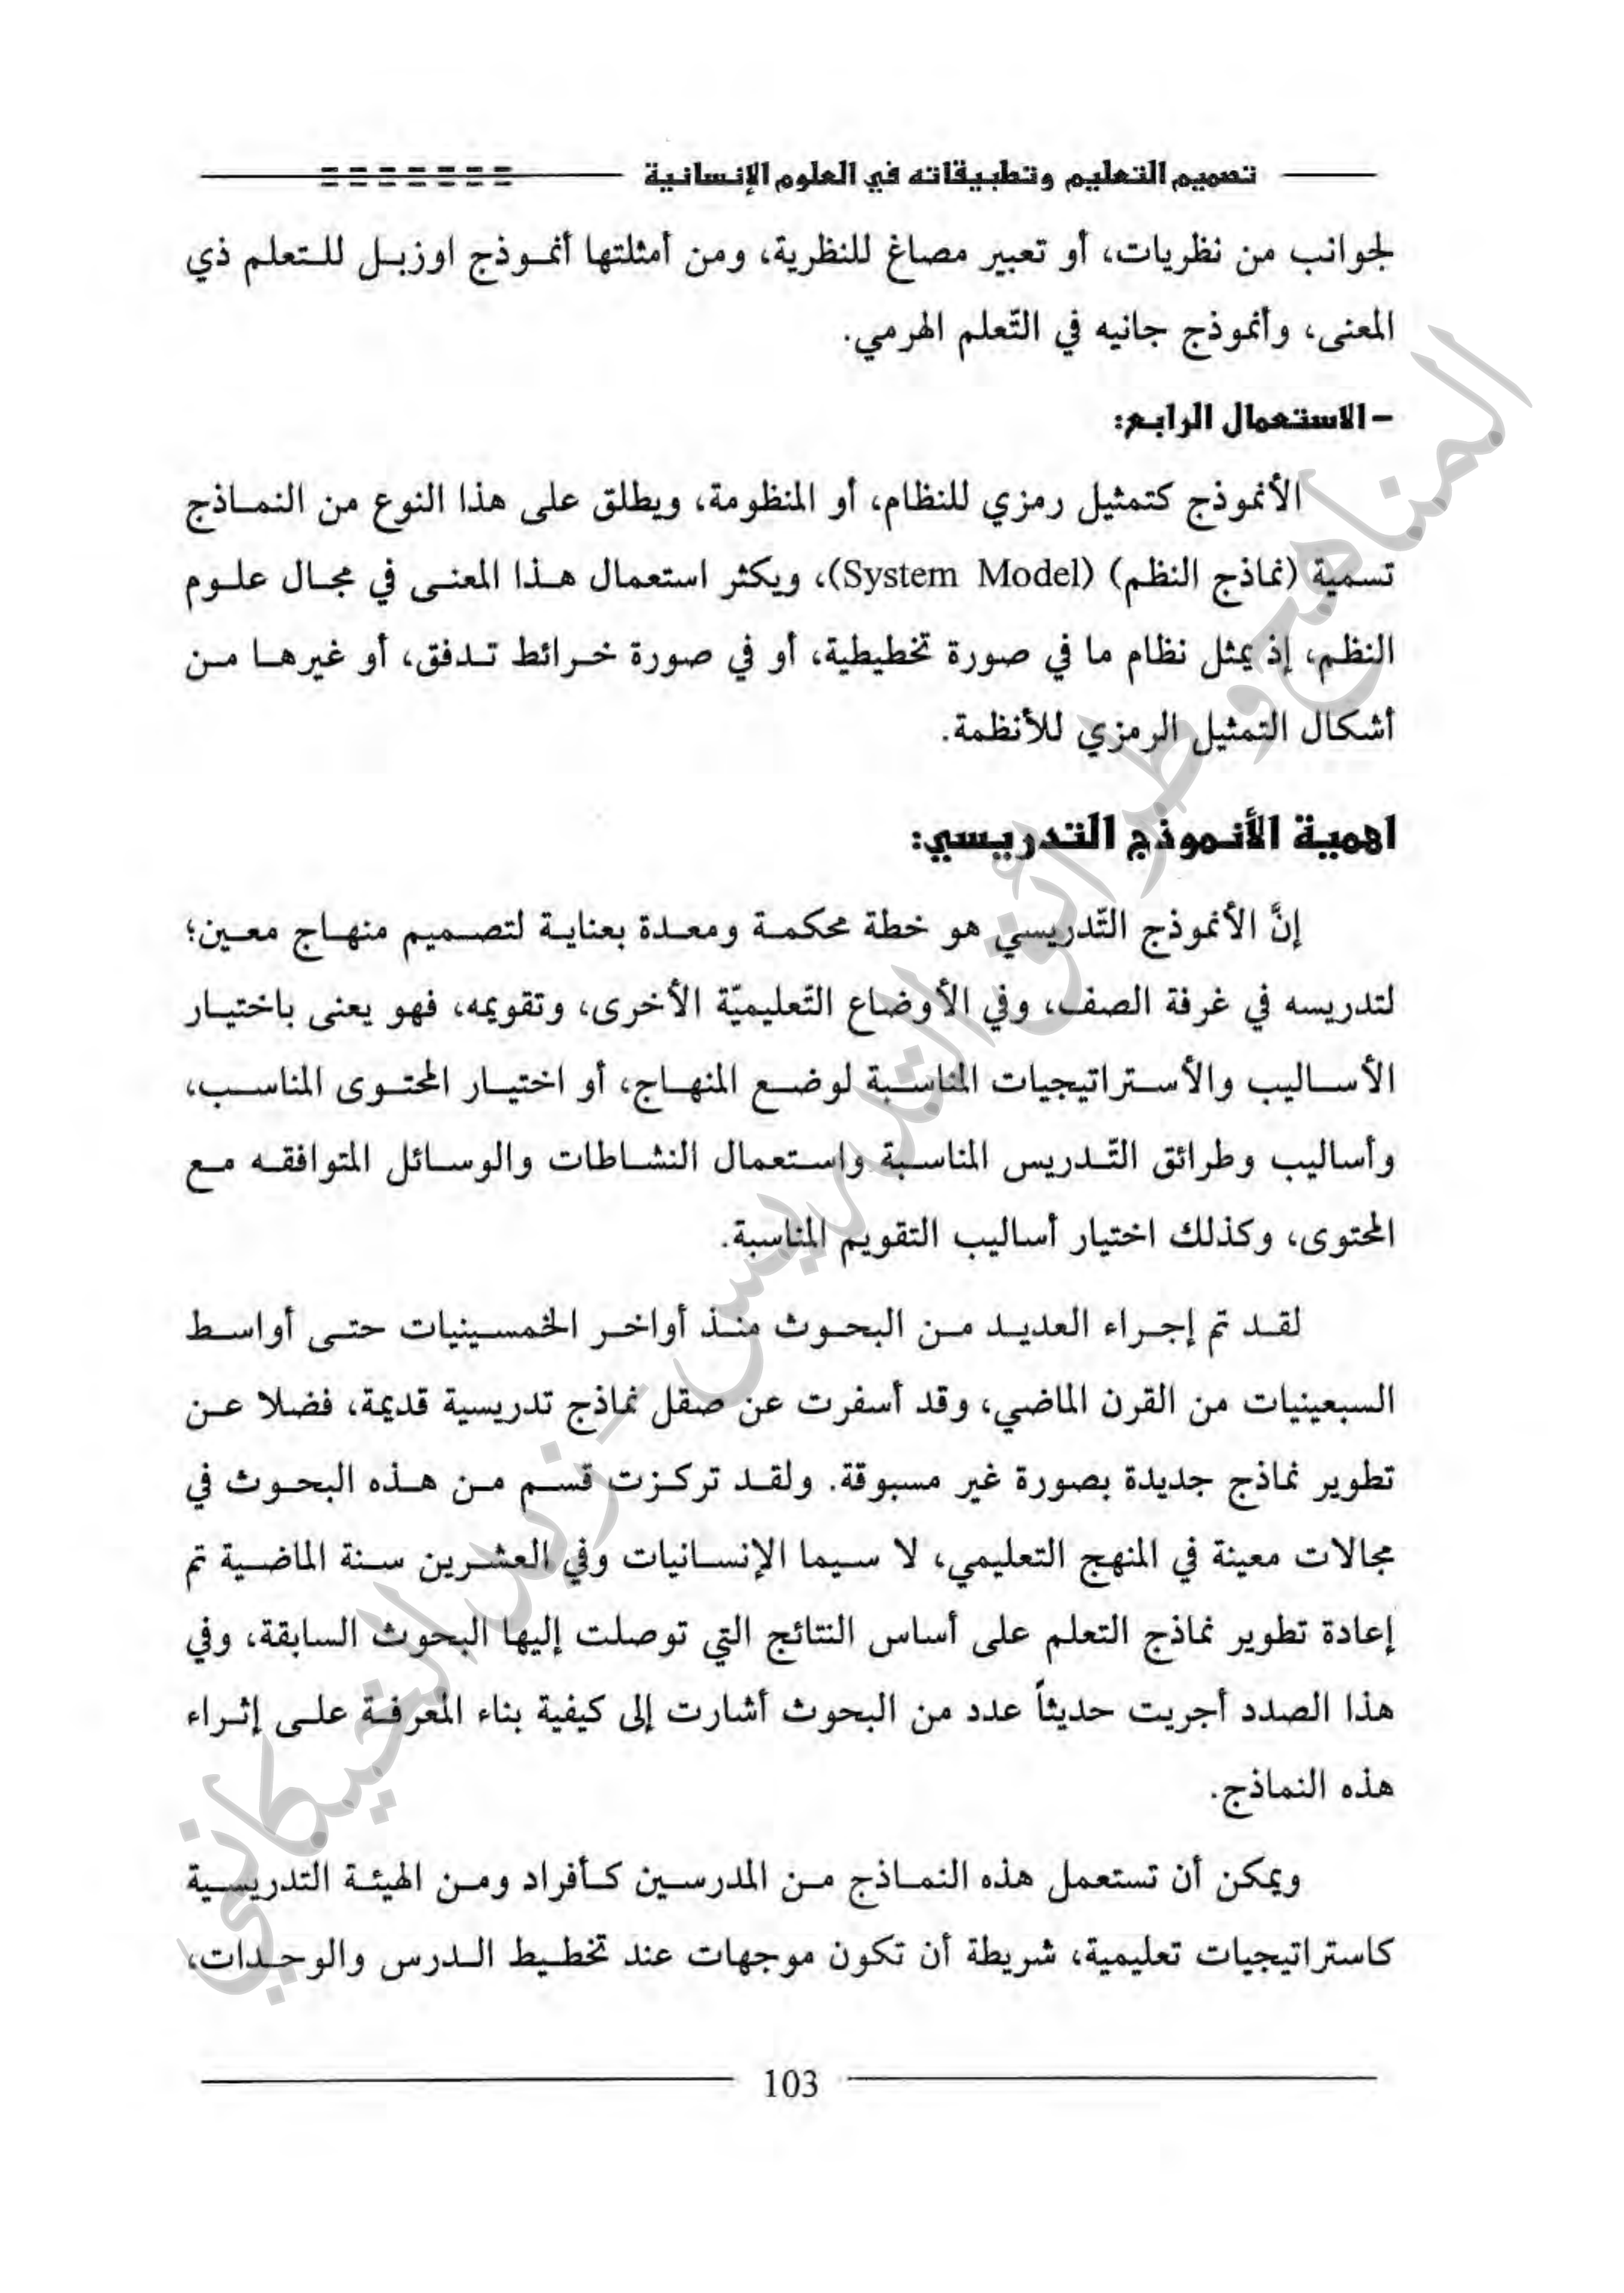 تصميم التعليم وتطبيقاته في العلوم الإنسانية
لجوانب من نظريات، أو تعبير مصاغ للنظرية، ومن أمثلتها أنموذج اوزبل للتعلم ذي
المعنى، وأنموذج جانيه في التّعلم الهرمي.
– الاستعمال الرابع:
الأنموذج كتمثيل رمزي للنظام، أو المنظومة، ويطلق على هذا النوع من النماذج
تسمية (نماذج النظم) (System Model)، ويكثر استعمال هذا المعنى في مجال علوم
النظم، إذ يمثل نظام ما في صورة تخطيطية، أو في صورة خرائط تدفق، أو غيرها من
أشكال التمثيل الرمزي للأنظمة.
اهمية الأنموذج التدريسي:
إنَّ الأنموذج التّدريسي هو خطة محكمة ومعدة بعناية لتصميم منهاج معين؛
لتدريسه في غرفة الصف، وفي الأوضاع التّعليميّة الأخرى، وتقويمه، فهو يعنى باختيار
الأساليب والأستراتيجيات المناسبة لوضع المنهاج، أو اختيار المحتوى المناسب،
وأساليب وطرائق التّدريس المناسبة واستعمال النشاطات والوسائل المتوافقه مع
المحتوى، وكذلك اختيار أساليب التقويم المناسبة.
لقد تم إجراء العديد من البحوث منذ أواخر الخمسينيات حتى أواسط
السبعينيات من القرن الماضي، وقد أسفرت عن صقل نماذج تدريسية قديمة، فضلا عن
تطوير نماذج جديدة بصورة غير مسبوقة. ولقد تركزت قسم من هذه البحوث في
مجالات معينة في المنهج التعليمي، لا سيما الإنسانيات وفي العشرين سنة الماضية تم
إعادة تطوير نماذج التعلم على أساس النتائج التي توصلت إليها البحوث السابقة، وفي
هذا الصدد أجريت حديثاً عدد من البحوث أشارت إلى كيفية بناء المعرفة على إثراء
هذه النماذج.
ويمكن أن تستعمل هذه النماذج من المدرسين كأفراد ومن الهيئة التدريسية
كاستراتيجيات تعليمية، شريطة أن تكون موجهات عند تخطيط الدرس والوحدات،
103
المناهج وطرائق التدريس - زيد الخيكاني